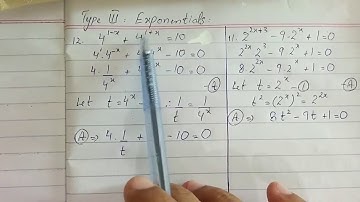 Type III: Exponentials:
12. 4^{1-x} + 4^{1+x} = 10
4^{1}. 4^{-x} + 4 ^{x} - 10 = 0
4. 1/4^{x} + ^{x} - 10 = 0
Let t = 4^{x} ; 1/t = 1/4^{x}
Ⓐ ⇒ 4. 1/t + - 10 = 0
11. 2^{2x+3} - 9.2^{x} + 1 = 0
2^{2x} 2^{3} - 9.2^{x} + 1 = 0
8.2^{2x} - 9.2^{x} + 1 = 0
Let t = 2^{x} - ①
t^{2} = (2^{x})^{2} = 2^{2x}
Ⓐ ⇒ 8t^{2} - 9t + 1 = 0